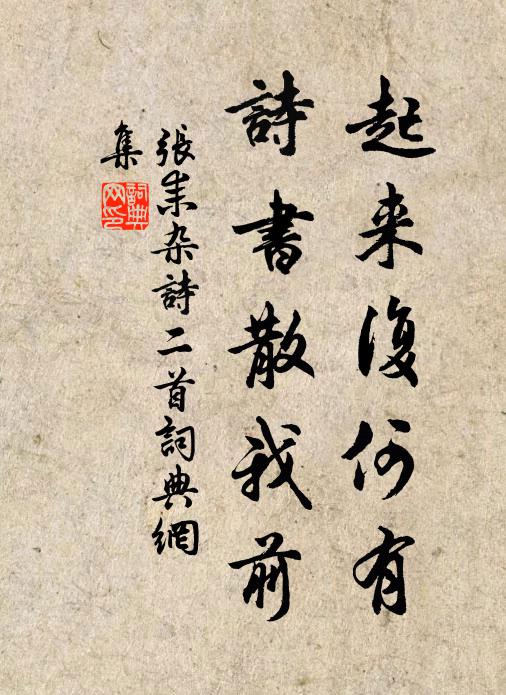 起来復何有
詩書散我前
張耒杂詩二首詞典網
集
詞典
网印